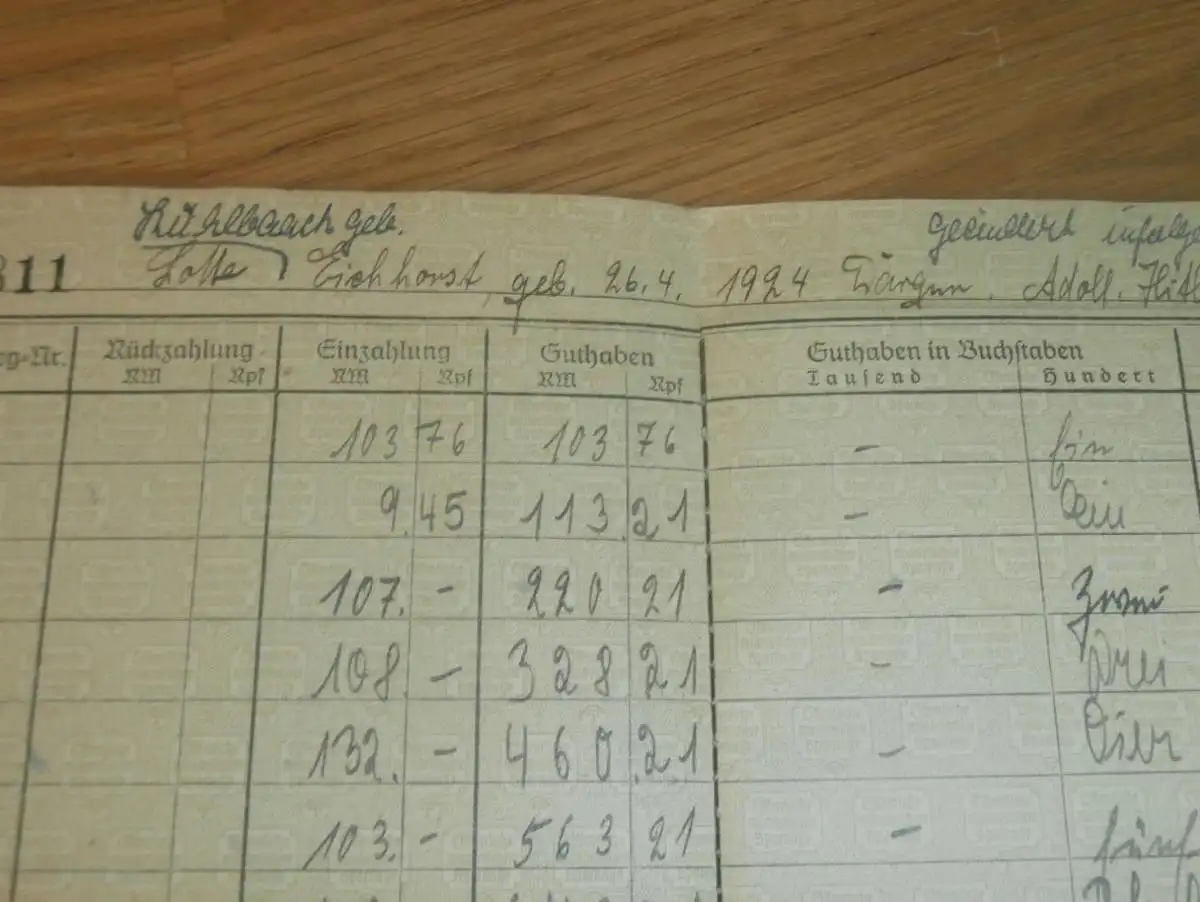 Kühlbaach geb. geändert infolge
311 Lotte Eichhorst, geb. 26.4. 1924 Adolf. Hitl
Rückzahlung Einzahlung Guthaben Guthaben in Buchstaben
RM Rpf RM Rpf RM Rpf Tausend Hundert
103 76 103 76 -
9. 45 113. 21 - Ein
107. - 220 21 - Zwei
108. - 328 21 - Drei
132. - 460. 21 - Vier
103. - 563 21 - fünf